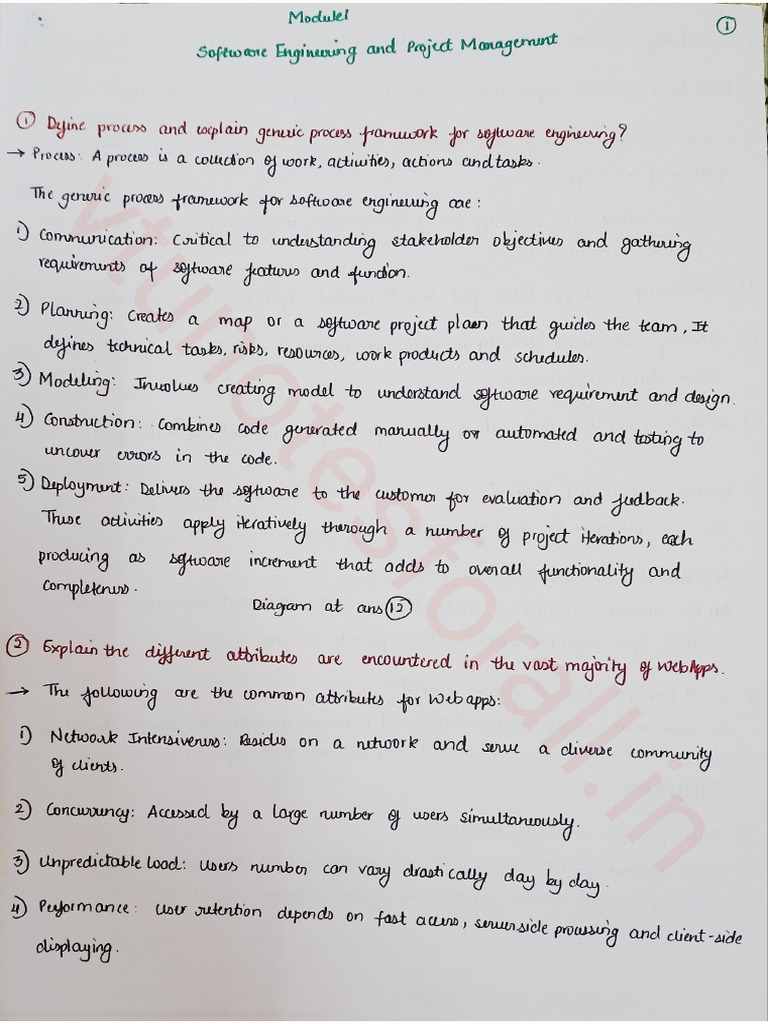 Module1
①
Software Engineering and Project Management
① Define process and explain generic process framework for software engineering?
→ Process: A process is a collection of work, activities, actions and tasks.
The generic process framework for software engineering are:
1) Communication: Critical to understanding stakeholder objectives and gathering
requirements of software features and function.
2) Planning: Creates a map or a software project plan that guides the team, It
defines technical tasks, risks, resources, work products and schedules.
3) Modeling: Involves creating model to understand software requirement and design.
4) Construction: Combines code generated manually or automated and testing to
uncover errors in the code.
5) Deployment: Delivers the software to the customer for evaluation and feedback.
These activities apply iteratively thorough a number of project iterations, each
producing as software increment that adds to overall functionality and
completeness.
Diagram at ans ⑫
② Explain the different attributes are encountered in the vast majority of WebApps.
→ The following are the common attributes for Web apps:
1) Network Intensiveness: Resides on a network and serve a diverse community
of clients.
2) Concurrency: Accessed by a large number of users simultaneously.
3) Unpredictable load: Users number can vary drastically day by day.
4) Performance: User retention depends on fast access, serverside processing and client-side
displaying.
vtunotesforall.in